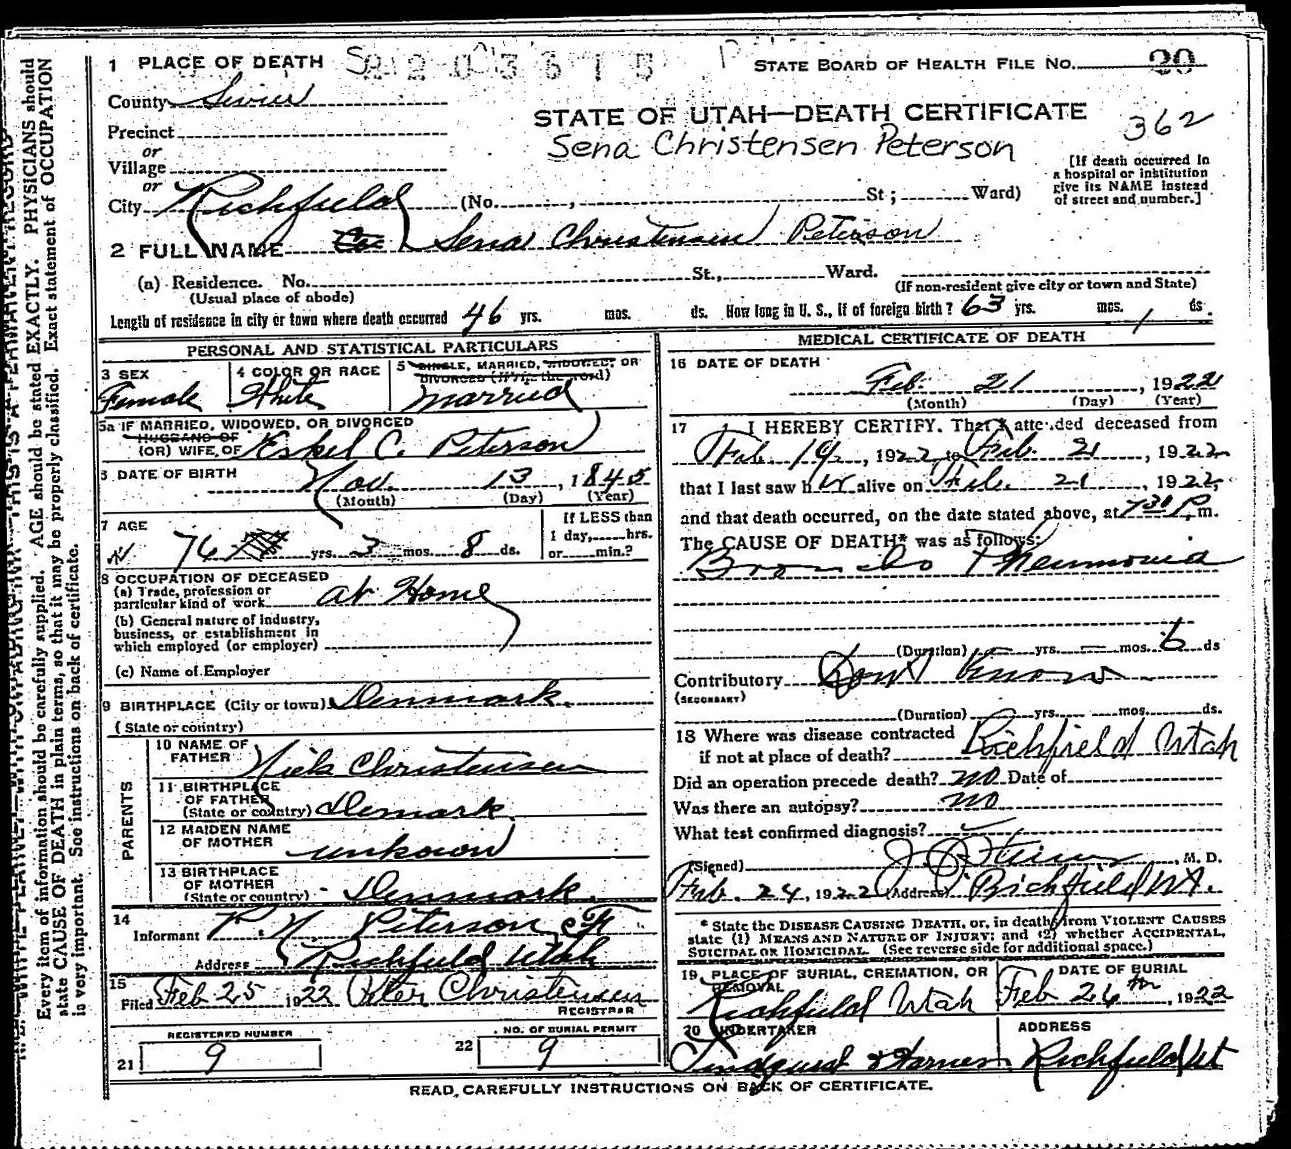 1 PLACE OF DEATH
2203615
STATE BOARD OF HEALTH FILE No. 20
County Sevier
STATE OF UTAH—DEATH CERTIFICATE
362
Precinct
Sena Christensen Peterson
or
Village
or
[If death occurred in
a hospital or institution
give its NAME instead
of street and number.]
City Richfield (No. , St; Ward)
2 FULL NAME Sena Christensen Peterson
(a) Residence. No. St., Ward.
(Usual place of abode)
(If non-resident give city or town and State)
Length of residence in city or town where death occurred 46 yrs. mos. ds. How long in U. S., if of foreign birth? 63 yrs. mos. 1 ds.
PERSONAL AND STATISTICAL PARTICULARS
3 SEX
Female
4 COLOR OR RACE
White
5 SINGLE, MARRIED, WIDOWED, OR
DIVORCED (write the word)
Married
5a IF MARRIED, WIDOWED, OR DIVORCED
HUSBAND OF
(OR) WIFE OF Eskel C. Peterson
6 DATE OF BIRTH
Nov. 13, 1845
(Month) (Day) (Year)
7 AGE
76 yrs. 3 mos. 8 ds.
If LESS than
1 day, hrs.
or min.?
8 OCCUPATION OF DECEASED
(a) Trade, profession or
particular kind of work at Home
(b) General nature of industry,
business, or establishment in
which employed (or employer)
(c) Name of Employer
9 BIRTHPLACE (City or town) Denmark.
(State or country)
PARENTS
10 NAME OF
FATHER Niels Christensen
11 BIRTHPLACE
OF FATHER
(State or country) Demark.
12 MAIDEN NAME
OF MOTHER unkown
13 BIRTHPLACE
OF MOTHER
(State or country) Denmark.
14
Informant P. N. Peterson
Address Richfield Utah
15
Filed Feb 25 1922 Peter Christensen
REGISTRAR
REGISTERED NUMBER
21 9
NO. OF BURIAL PERMIT
22 9
MEDICAL CERTIFICATE OF DEATH
16 DATE OF DEATH
Feb. 21, 1922
(Month) (Day) (Year)
17 I HEREBY CERTIFY. That I attended deceased from
Feb. 19, 1922 to Feb. 21, 1922
that I last saw her alive on Feb. 21, 1922
and that death occurred, on the date stated above, at 7 30 P. m.
The CAUSE OF DEATH* was as follows:
Broncho Pneumonia
(Duration) yrs. mos. 6 ds
Contributory Dont Know
(SECONDARY)
(Duration) yrs. mos. ds.
18 Where was disease contracted
if not at place of death? Richfield Utah
Did an operation precede death? no Date of
Was there an autopsy? no
What test confirmed diagnosis?
(Signed) , M. D.
Feb. 24, 1922 (Address) Richfield Ut.
* State the DISEASE CAUSING DEATH, or, in deaths from VIOLENT CAUSES
state (1) MEANS AND NATURE OF INJURY; and (2) whether ACCIDENTAL,
SUICIDAL OR HOMICIDAL. (See reverse side for additional space.)
19 PLACE OF BURIAL, CREMATION, OR
REMOVAL
Richfield Utah
DATE OF BURIAL
Feb 26th, 1922
20 UNDERTAKER
ADDRESS
Richfield Ut
READ, CAREFULLY INSTRUCTIONS ON BACK OF CERTIFICATE.
Every item of information should be carefully supplied. AGE should be stated EXACTLY. PHYSICIANS should
state CAUSE OF DEATH in plain terms, so that it may be properly classified. Exact statement of OCCUPATION
is very important. See instructions on back of certificate.